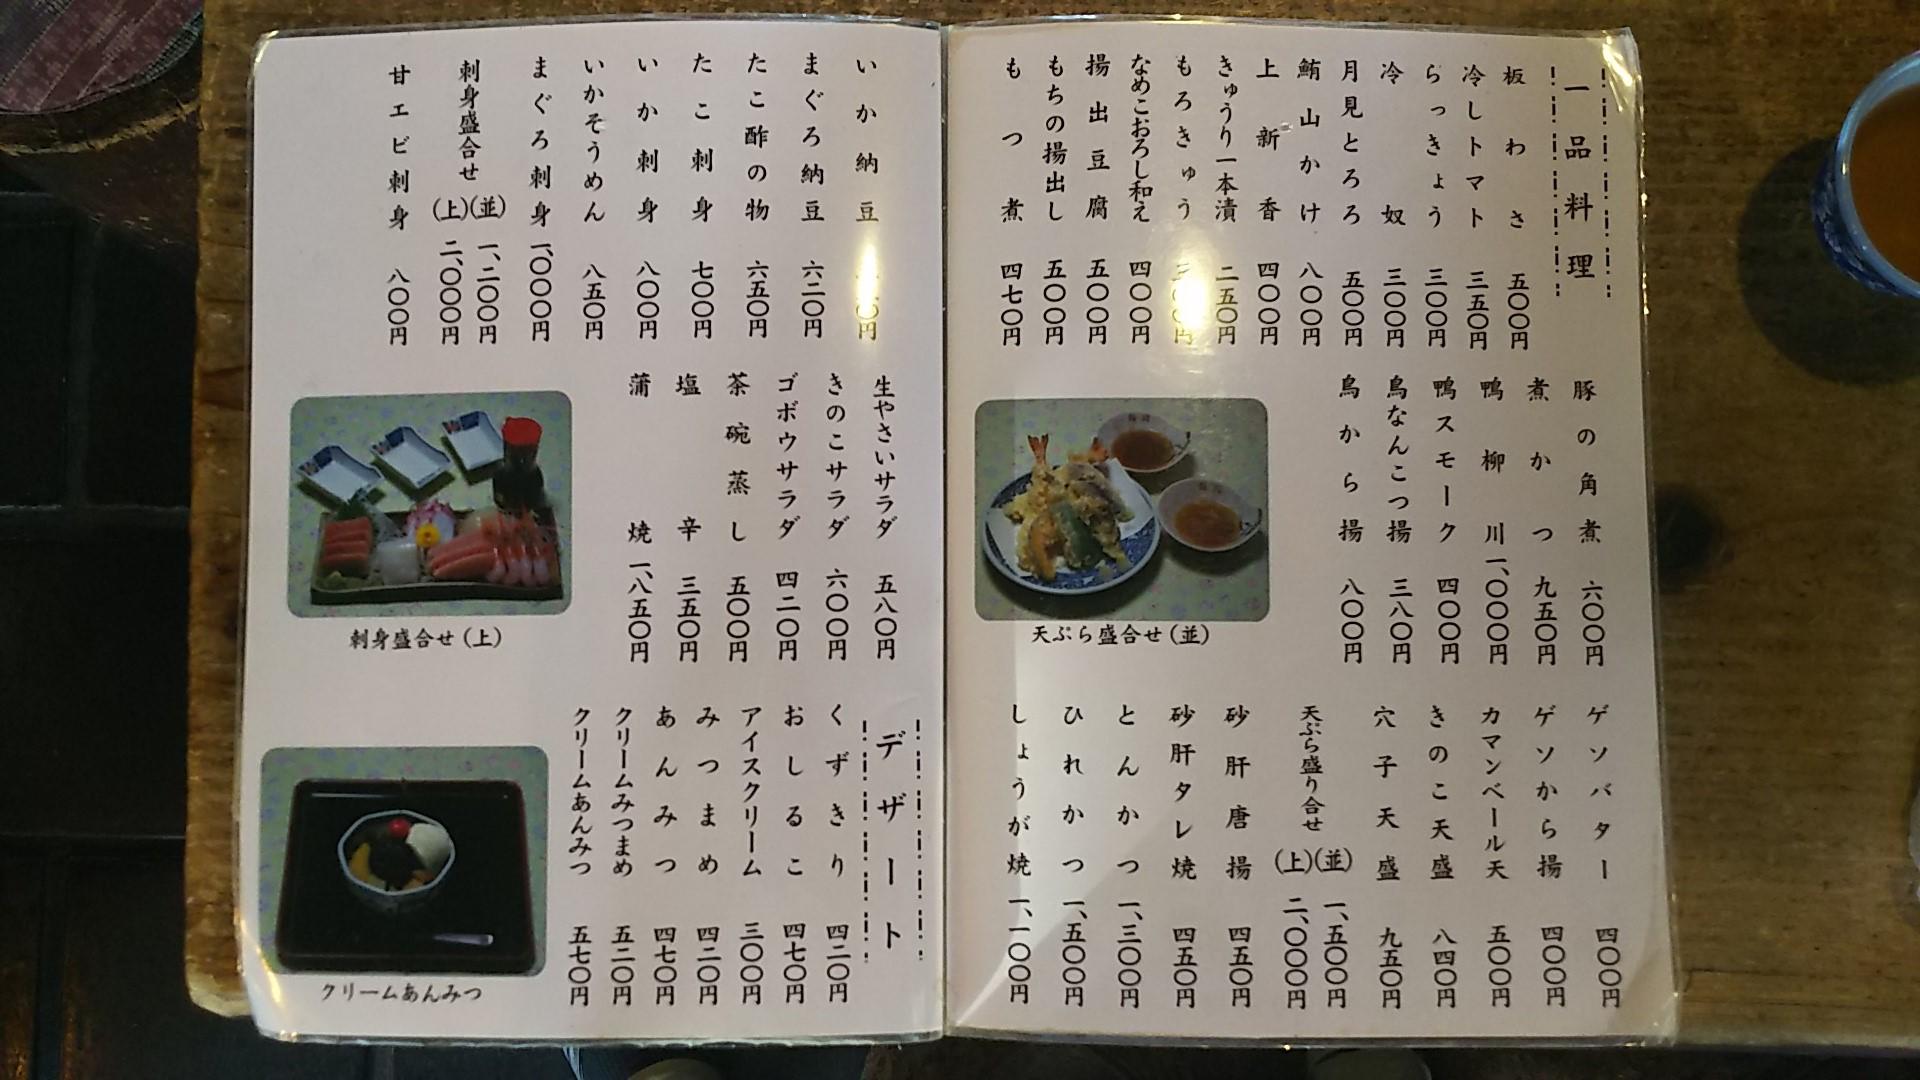 一品料理
板わさ 五〇〇円
冷しトマト 三五〇円
らっきょう 三〇〇円
冷奴 三〇〇円
月見とろろ 五〇〇円
鮪山かけ 八〇〇円
上新香 四〇〇円
きゅうり一本漬 二五〇円
もろきゅう
なめこおろし和え 四〇〇円
揚出豆腐 五〇〇円
もちの揚出し 五〇〇円
もつ煮 四七〇円
豚の角煮 六〇〇円
煮かつ 九五〇円
鴨柳川 一、〇〇〇円
鴨スモーク 四〇〇円
鳥なんこつ揚 三八〇円
鳥から揚 八〇〇円
天ぷら盛合せ(並)
ゲソバター 四〇〇円
ゲソから揚 四〇〇円
カマンベール天 五〇〇円
きのこ天盛 八四〇円
穴子天盛 九五〇円
天ぷら盛り合せ (並) 一、五〇〇円
(上) 二、〇〇〇円
砂肝唐揚 四五〇円
砂肝タレ焼 四五〇円
とんかつ 一、三〇〇円
ひれかつ 一、五〇〇円
しょうが焼 一、一〇〇円
いか納豆
まぐろ納豆 六二〇円
たこ酢の物 六五〇円
たこ刺身 七〇〇円
いか刺身 八〇〇円
いかそうめん 八五〇円
まぐろ刺身 一、〇〇〇円
刺身盛合せ (並) 一、二〇〇円
(上) 二、〇〇〇円
甘エビ刺身 八〇〇円
生やさいサラダ 五八〇円
きのこサラダ 六〇〇円
ゴボウサラダ 四二〇円
茶碗蒸し 五〇〇円
塩辛 三五〇円
蒲焼 一、八五〇円
刺身盛合せ(上)
デザート
くずきり 四二〇円
おしるこ 四七〇円
アイスクリーム 三〇〇円
みつまめ 四二〇円
あんみつ 四七〇円
クリームみつまめ 五二〇円
クリームあんみつ 五七〇円
クリームあんみつ